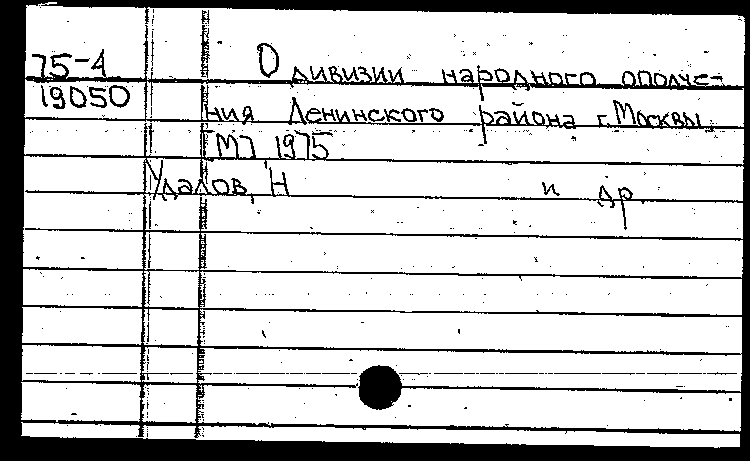 75-4 О дивизии народного ополче-
19050 ния Ленинского района г. Москвы.
[М] 1975
Удалов, Н и др.